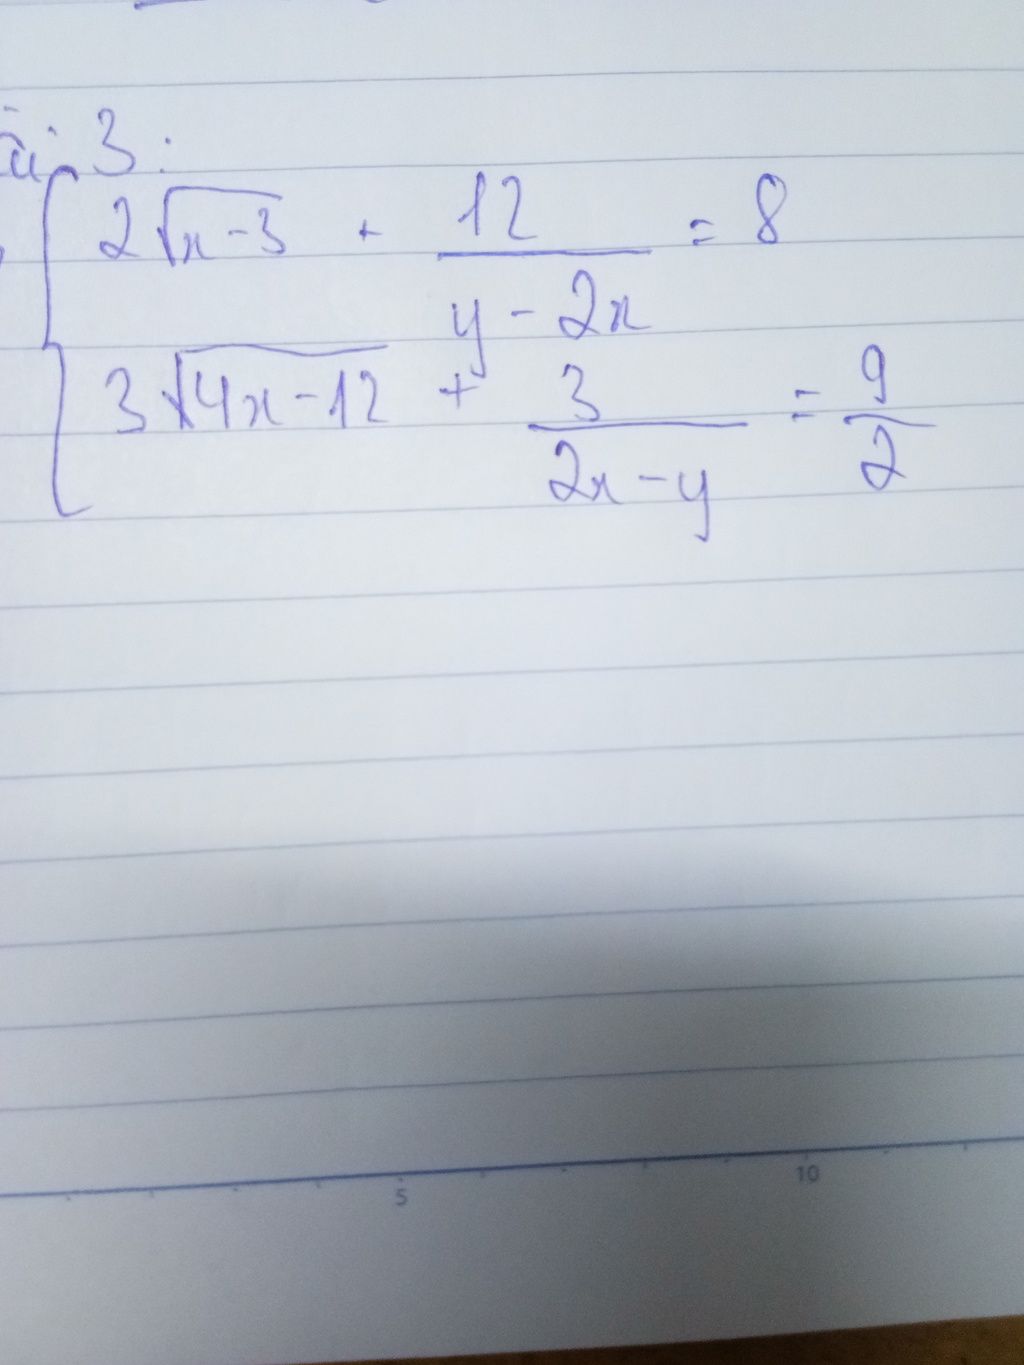 3:
2√(x-3) + 12/(y-2x) = 8
3√(4x-12) + 3/(2x-y) = 9/2
5 10